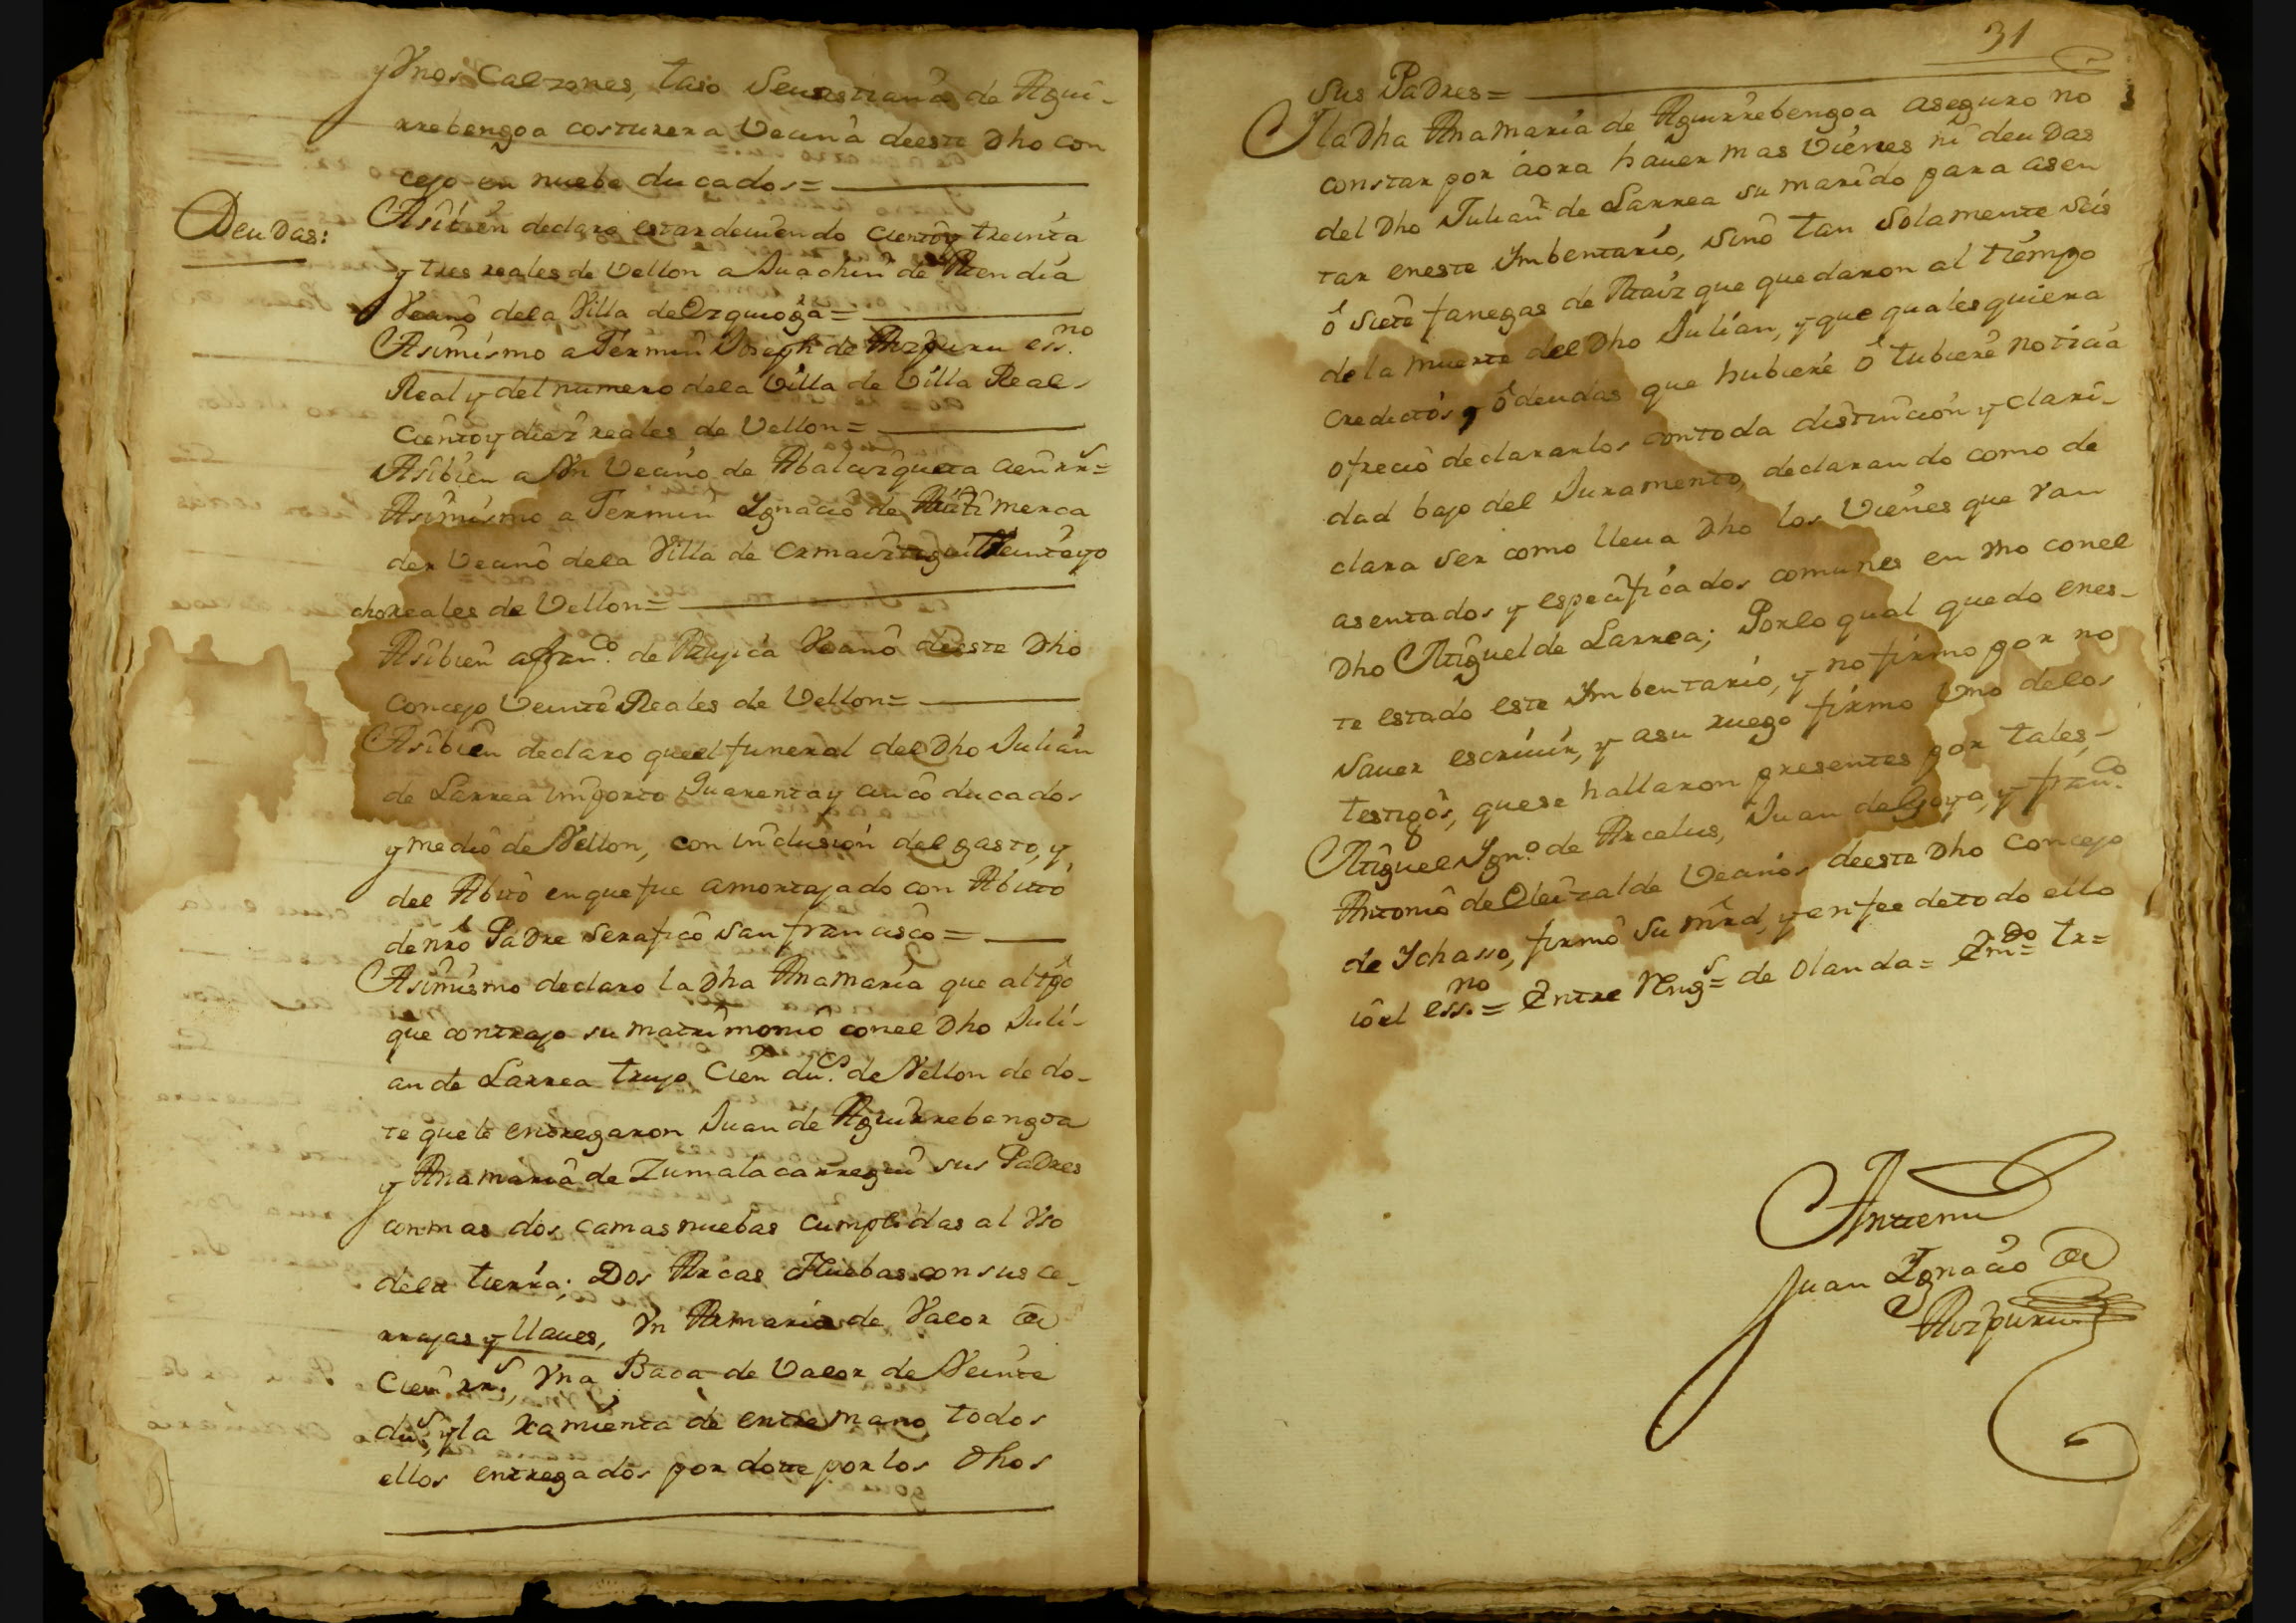 y Vnos Calzones, taso Seuastiana de Agui-
rrebengoa costurera Vecina deeste Dho Con
cejo en nuebe ducados=
Deudas:
Asibien declaro estar deuiendo ciento y treinta
y tres reales de Vellon a Juachin de Atendia
Vecino dela Villa de Ezquioga=
Asimismo a Fermin Joseph de Aizpuru ess.no
Real y del numero dela Villa de Villa Real
Ciento y diez reales de Vellon=
Asibien a Vn Vecino de Abalcizqueta Cien rr.s=
Asimismo a Fermin Ygnacio de merca
der Vecino dela Villa de Ormaiztegui Veinte y o
cho reales de Vellon=
Asibien a fran.co de Vecino deeste Dho
Concejo Veinte Reales de Vellon=
Asibien declaro que el funeral del Dho Julian
de Larrea importo Quarenta y cinco ducados
y medio de Vellon, con inclusion del gasto, y
del Abito en que fue amortajado con Abito
de nro Padre serafico san francisco=
Asimismo declaro la Dha Ana maria que al tpo
que contrajo su matrimonio con el Dho Juli-
an de Larrea trujo Cien du.s de Vellon de do-
te que le entregaron Juan de Aguirrebengoa
y Ana maria de Zumalacarregui sus Padres
con mas dos camas nuebas cumplidas al Vso
dela tierra; Dos Arcas Nuebas con sus ce-
rrajas y llaues, Vn Armario de Valor de
Cien rr.s, Vna Baca de Valor de Veinte
du.s, y la xamienta de entremano todos
ellos entregados por dote por los Dhos
31
sus Padres=
Y la Dha Ana maria de Aguirrebengoa aseguro no
constar por aora hauer mas Vienes ni deudas
del Dho Julian de Larrea su marido para asen
tar en este Ymbentario, sino tan solamente seis
o siete fanegas de Maiz que quedaron al tiempo
de la muerte del Dho Julian, y que quales quiera
creditos y o deudas que hubiere o tubiere noticia
ofrecio declararlos con toda distincion y clari-
dad bajo del Juramento, declarando como de
clara ser como lleua Dho los Vienes que Van
asentados y especificados comunes en Vno con el
Dho Miguel de Larrea; Por lo qual quedo en es-
te estado este Ymbentario, y no firmo por no
sauer escriuir, y a su ruego firmo Vno de los
testigos, que se hallaron presentes por tales,
Miguel Ygn.o de Arcelus, Juan de Goya, y fran.co
Antonio de Oleizalde Vecinos deeste Dho Concejo
de Ychasso, firmo su mrd, y en fee de todo ello
io el ess.no= Entre Reng.s= de Olanda= Em.do= tr=
Antemi
Juan Ygnacio de
Aizpuru